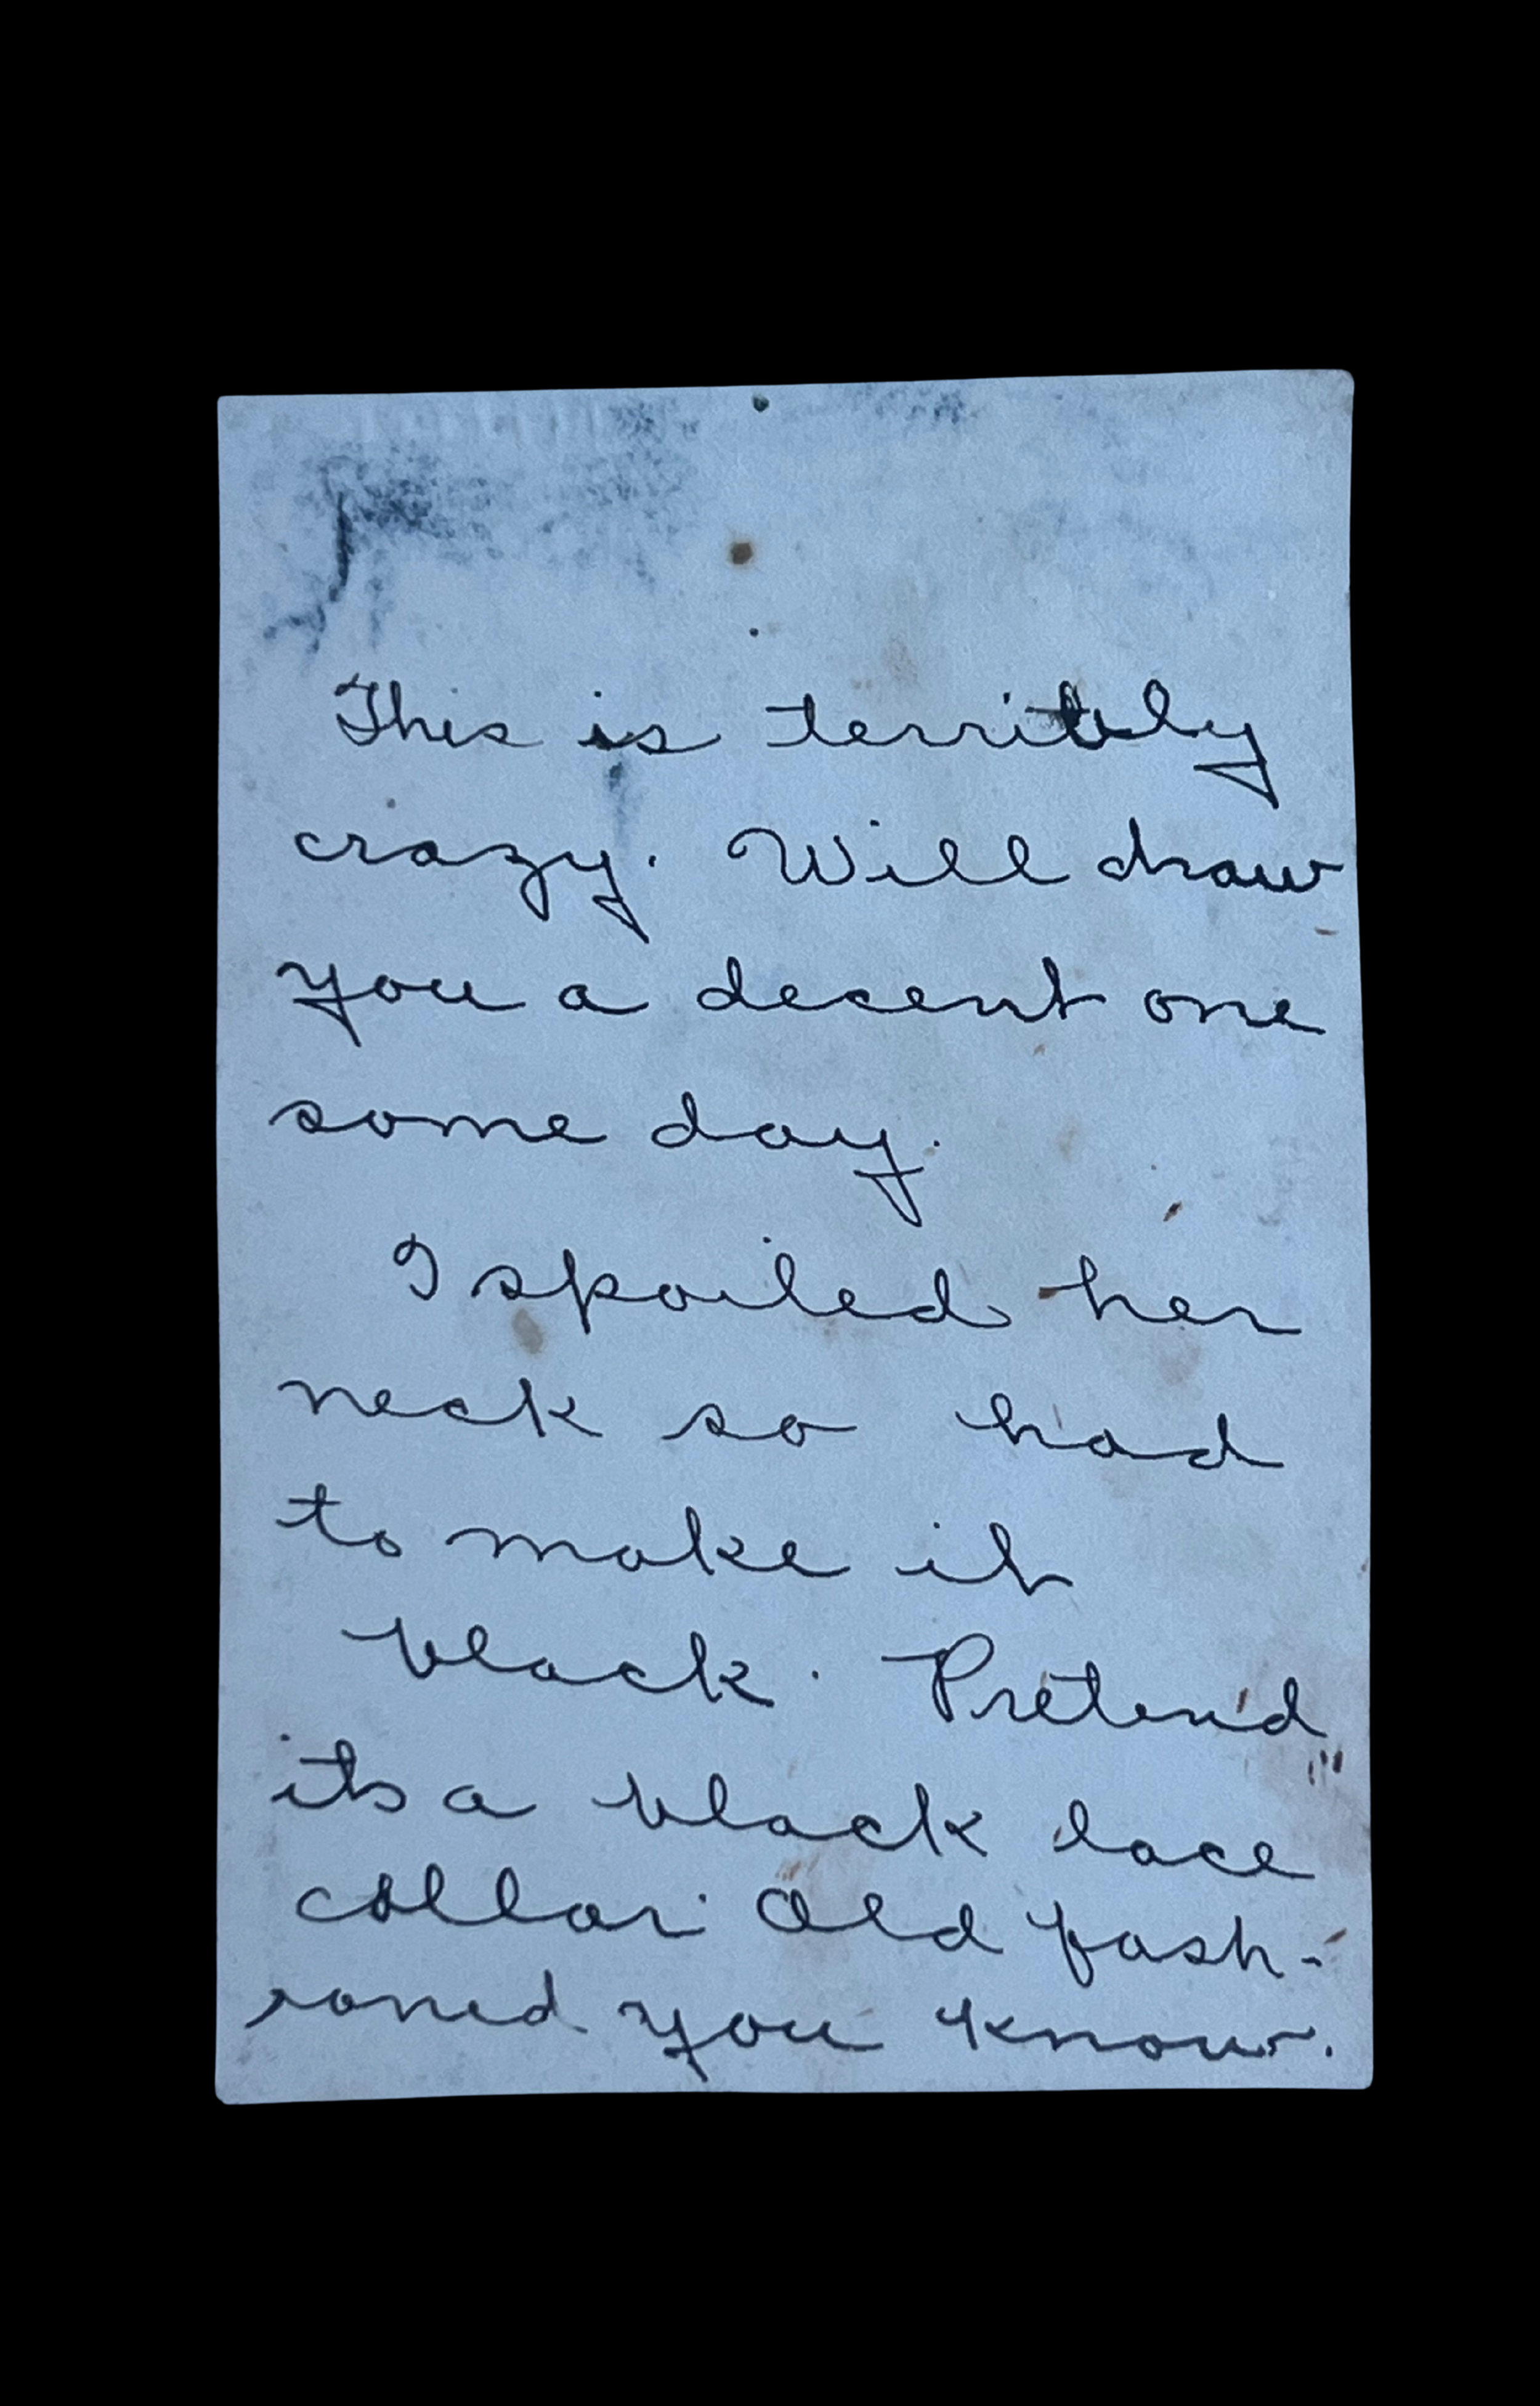 This is terribly
crazy. Will draw
you a decent one
some day.
I spoiled her
neck so had
to make it
black. Pretend
its a black lace
collar Old fash-
ioned you know.